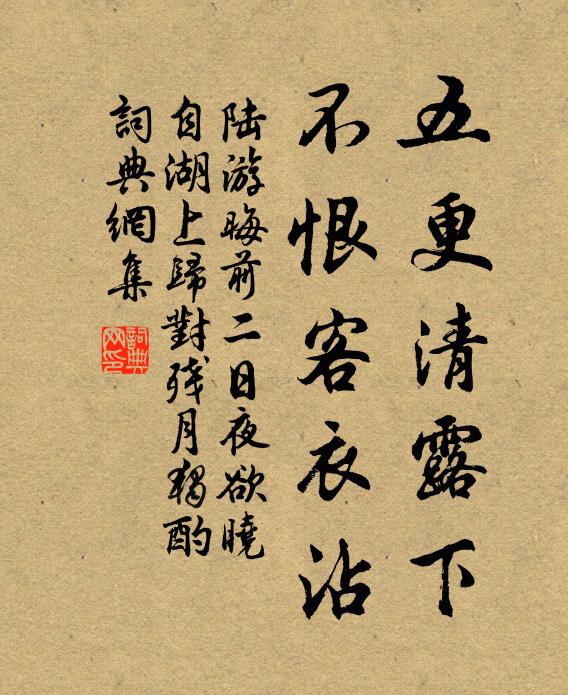 五更清露下
不恨客衣沾
陆游晦前二日夜欲曉
自湖上歸對残月獨酌
詞典網集
詞典网印